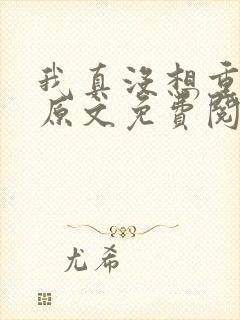 我真没想重
原文免费阅
尤希